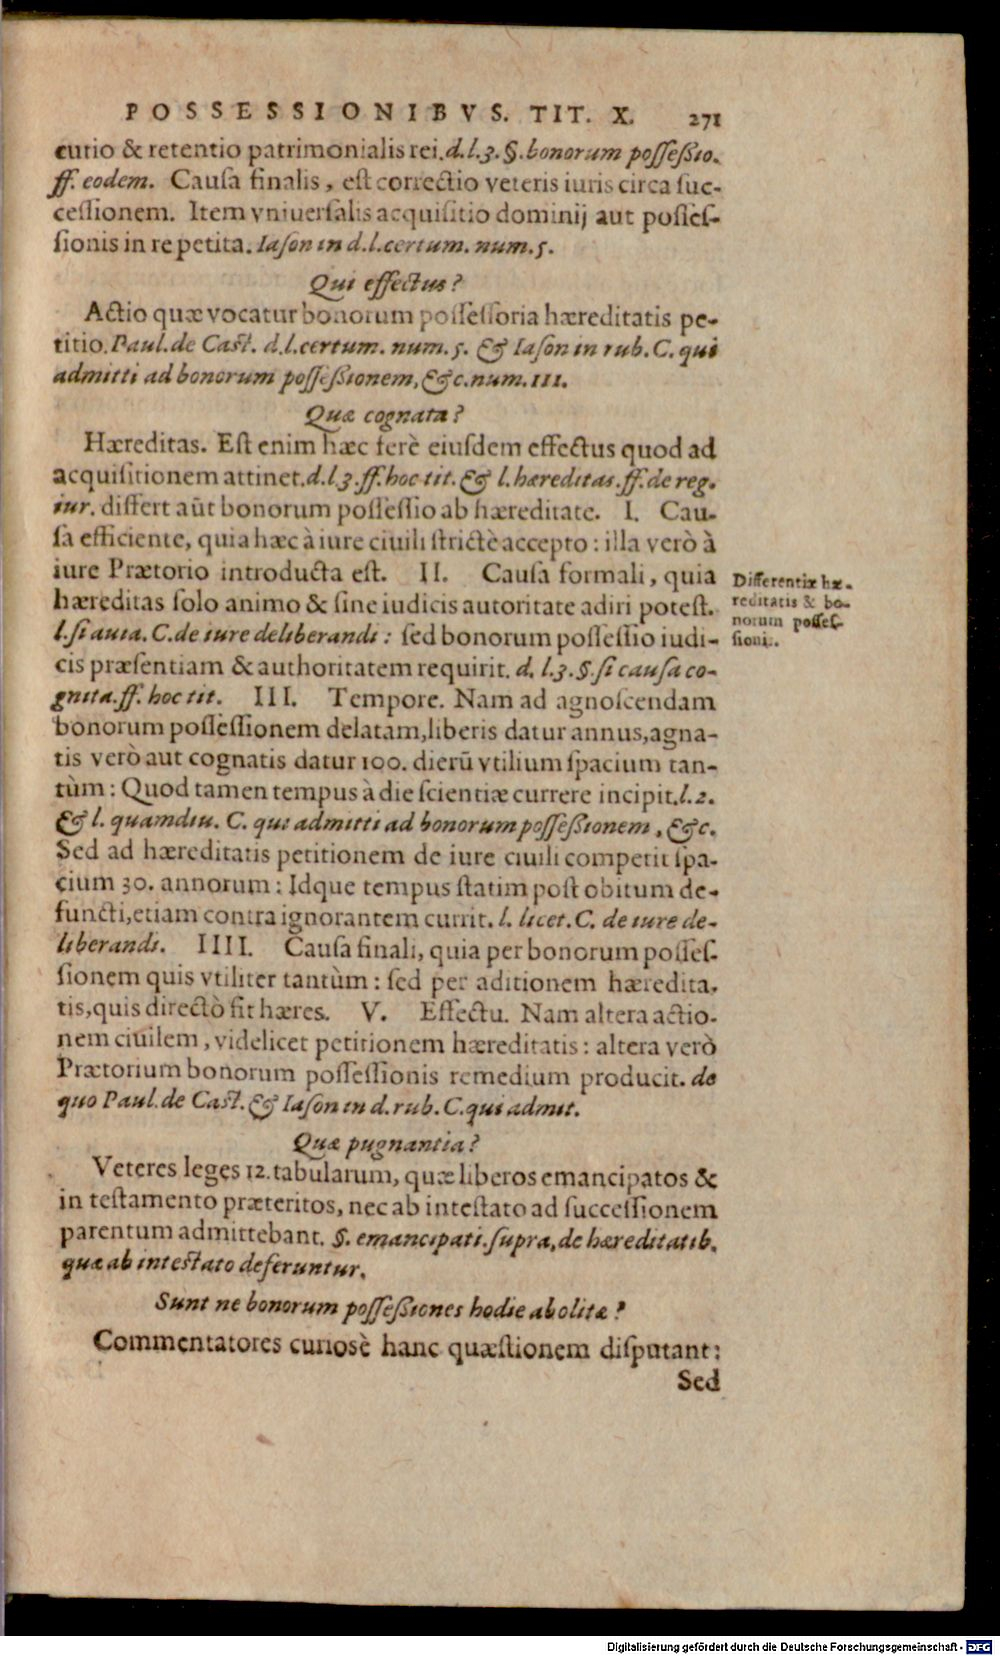 POSSESSIONIBVS. TIT. X. 271
cutio & retentio patrimonialis rei. d.l.3. §. bonorum possessio.
ff. eodem. Causa finalis, est correctio veteris iuris circa suc-
cessionem. Item vniuersalis acquisitio dominij aut posses-
sionis in re petita. Iason in d.l. certum. num. 5.
Qui effectus?
Actio quæ vocatur bonorum possessoria hæreditatis pe-
titio. Paul. de Cast. d.l. certum. num. 5. & Iason in rub. C. qui
admitti ad bonorum possessionem, &c. num. III.
Quæ cognata?
Hæreditas. Est enim hæc ferè eiusdem effectus quod ad
acquisitionem attinet. d.l.3. ff. hoc tit. & l. hæreditas. ff. de reg.
iur. differt aūt bonorum possessio ab hæreditate. I. Cau-
sa efficiente, quia hæc à iure ciuili strictè accepto: illa verò à
iure Prætorio introducta est. II. Causa formali, quia
hæreditas solo animo & sine iudicis autoritate adiri potest.
l. si auia. C. de iure deliberandi: sed bonorum possessio iudi-
cis præsentiam & authoritatem requirit. d. l.3. §. si causa co-
gnita. ff. hoc tit. III. Tempore. Nam ad agnoscendam
bonorum possessionem delatam, liberis datur annus, agna-
tis verò aut cognatis datur 100. dierū vtilium spacium tan-
tùm: Quod tamen tempus à die scientiæ currere incipit. l. 2.
& l. quamdiu. C. qui admitti ad bonorum possessionem, &c.
Sed ad hæreditatis petitionem de iure ciuili competit spa-
cium 30. annorum: Idque tempus statim post obitum de-
functi, etiam contra ignorantem currit. l. licet. C. de iure de-
liberandi. IIII. Causa finali, quia per bonorum posses-
sionem quis vtiliter tantùm: sed per aditionem hæredita-
tis, quis directò fit hæres. V. Effectu. Nam altera actio-
nem ciuilem, videlicet petitionem hæreditatis: altera verò
Prætorium bonorum possessionis remedium producit. de
quo Paul. de Cast. & Iason in d. rub. C. qui admit.
Quæ pugnantia?
Veteres leges 12. tabularum, quæ liberos emancipatos &
in testamento præteritos, nec ab intestato ad successionem
parentum admittebant. §. emancipati. supra, de hæreditatib.
quæ ab intestato deferuntur.
Sunt ne bonorum possessiones hodie abolitæ?
Commentatores curiosè hanc quæstionem disputant:
Sed
Differentiæ hæ-
reditatis & bo-
norum posses-
sionis.
Digitalisierung gefördert durch die Deutsche Forschungsgemeinschaft - DFG